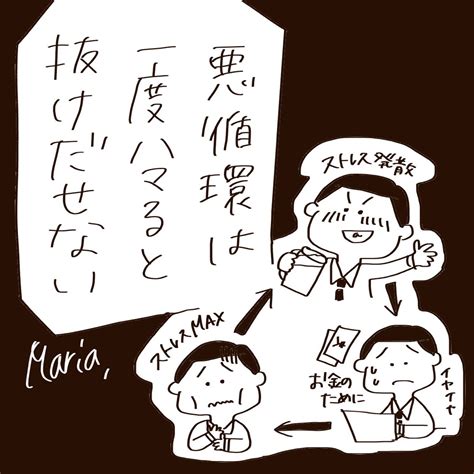 悪循環は
一度ハマると
抜けだせない
ストレス発散
お金の
ために
イヤイヤ
ストレスMAX
Maria,